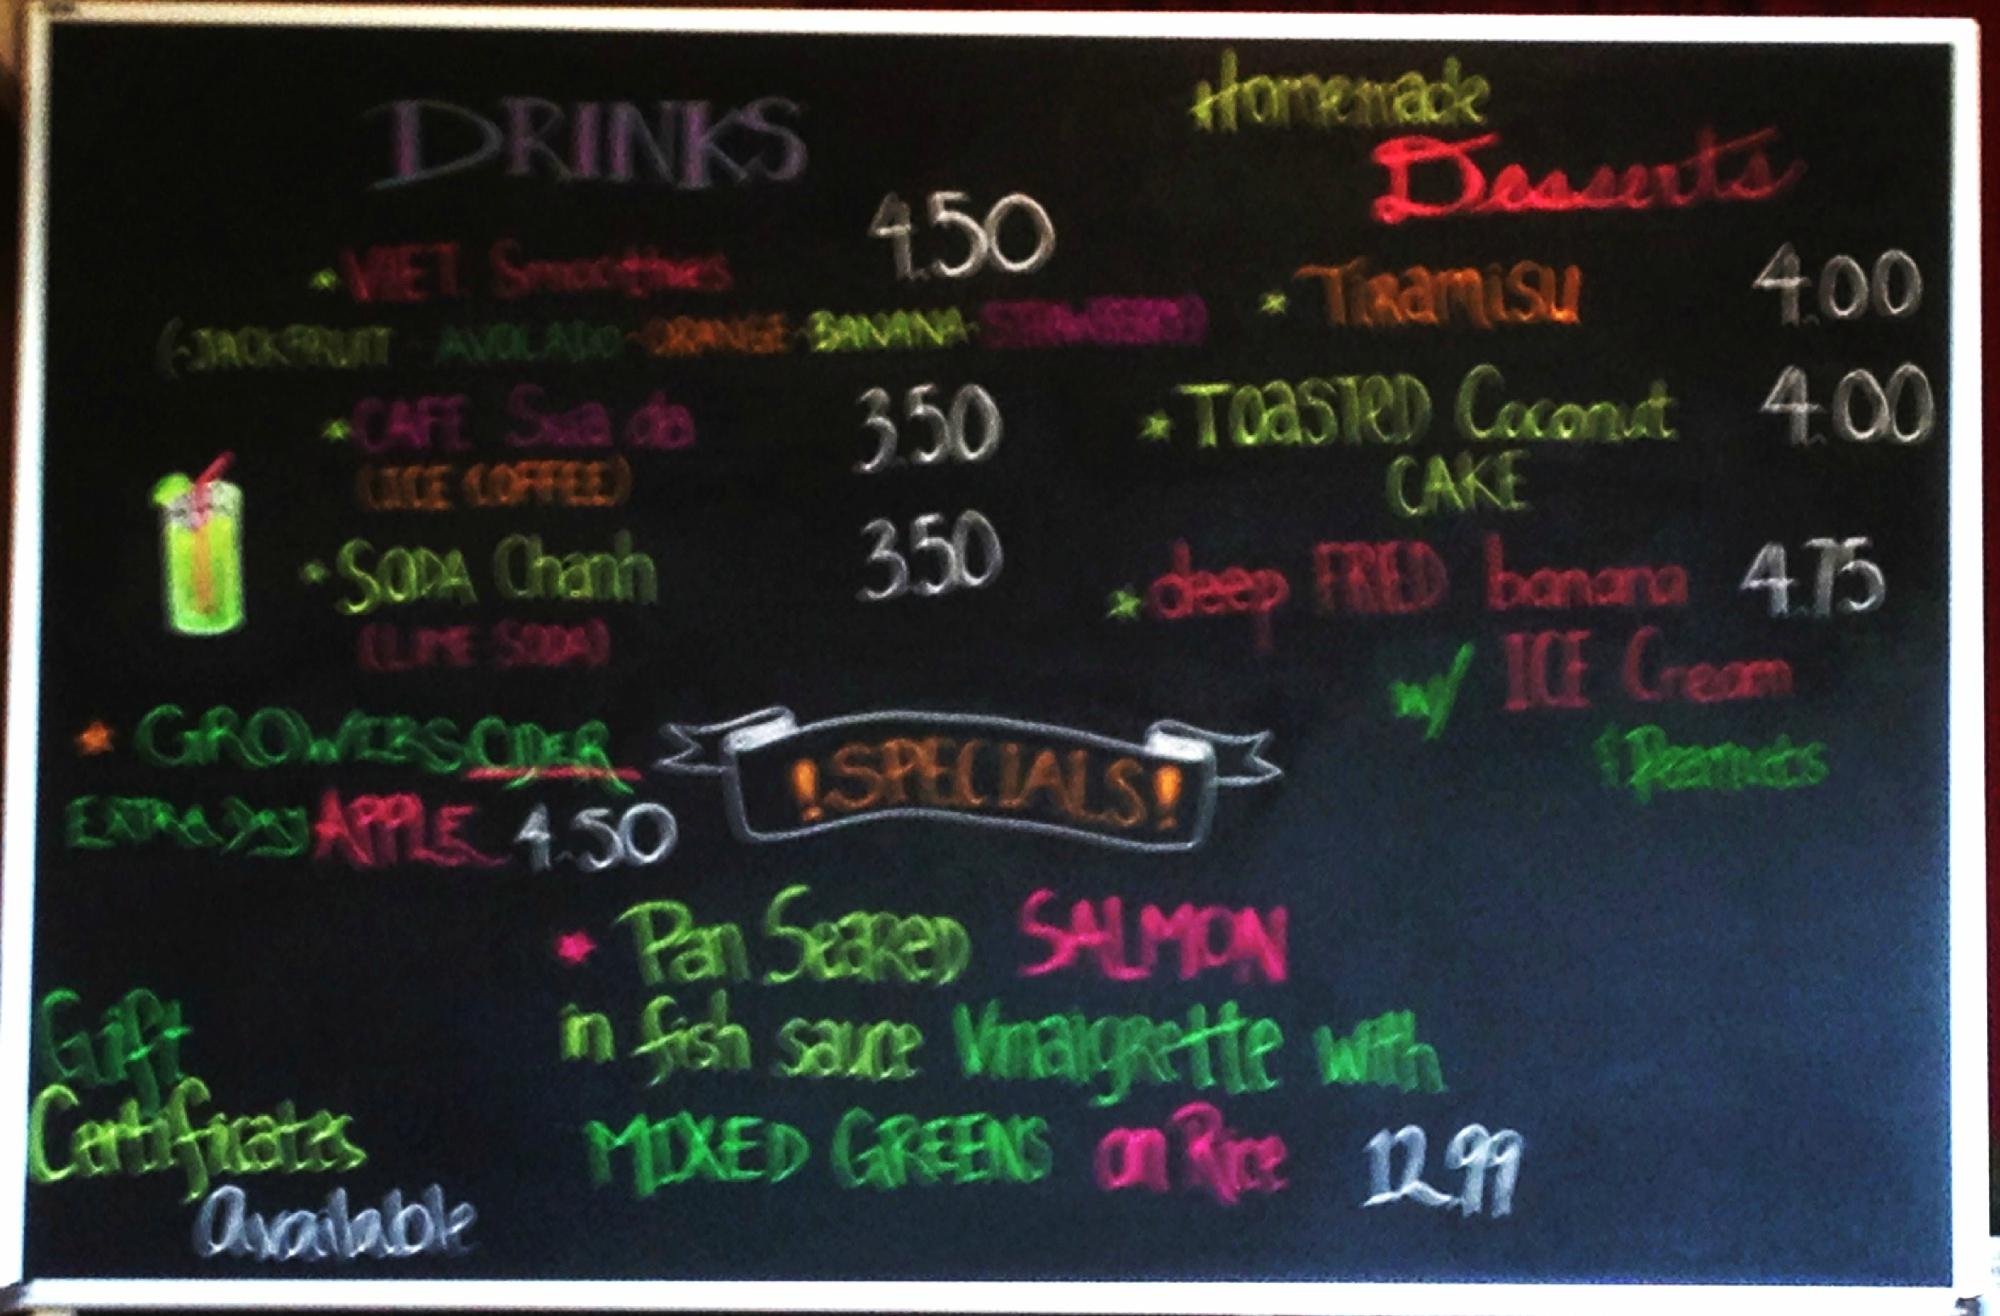 DRINKS
* VIET. Smoothies 4.50
(-JACKFRUIT -AVOCADO -ORANGE -BANANA- STRAWBERRY)
* CAFE Sua da 3.50
(ICE COFFEE)
* SODA Chanh 3.50
(LIME SODA)
* GROWERS CIDER
EXTRA DRY APPLE 4.50
Homemade
Desserts
* TIRAMISU 4.00
* TOASTED Coconut 4.00
CAKE
* deep FRIED banana 4.75
w/ ICE Cream
& Peanuts
! SPECIALS !
* Pan Seared SALMON
in fish sauce Vinaigrette with
MIXED GREENS on Rice 12.99
Gift
Certificates
available